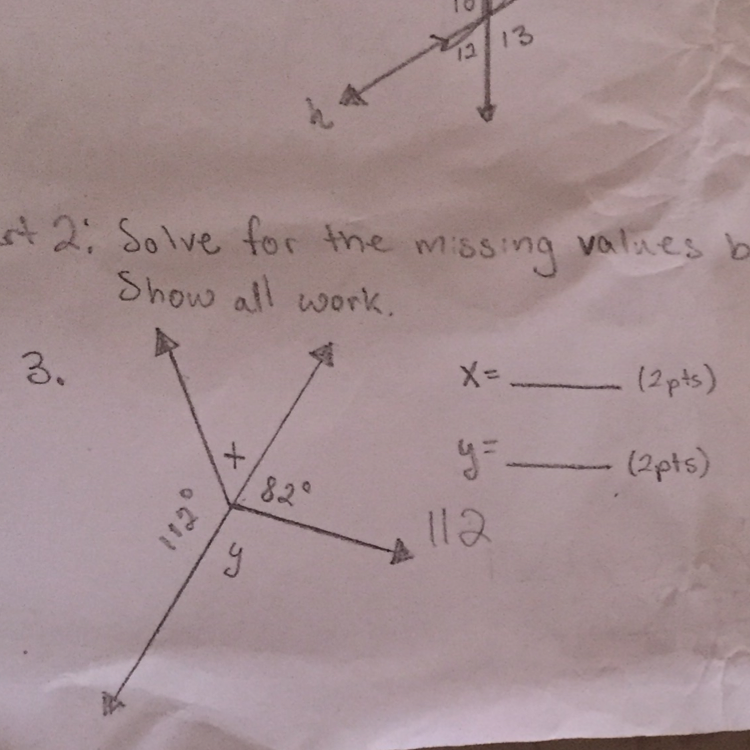 10
12 13
h
rt 2: Solve for the missing values b
Show all work.
3.
x= ______ (2pts)
y= ______ (2pts)
+
82°
112°
y
112